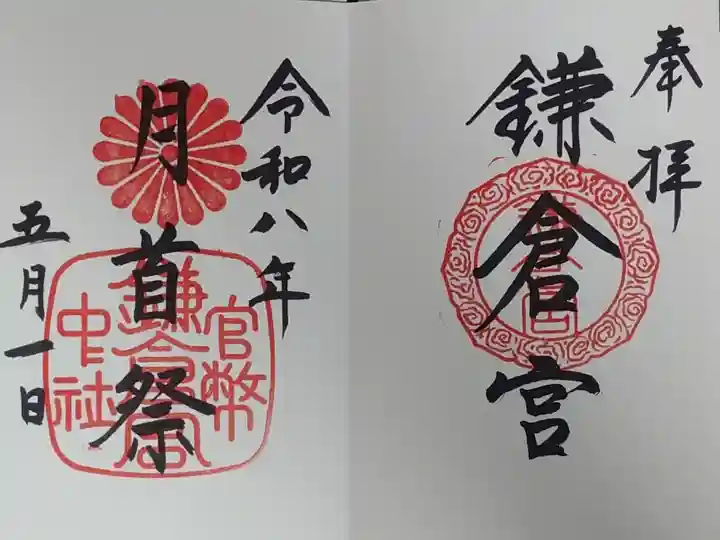 奉拝
鎌倉宮
鎌倉宮
令和八年
月首祭
五月一日
官幣
鎌倉宮
中社